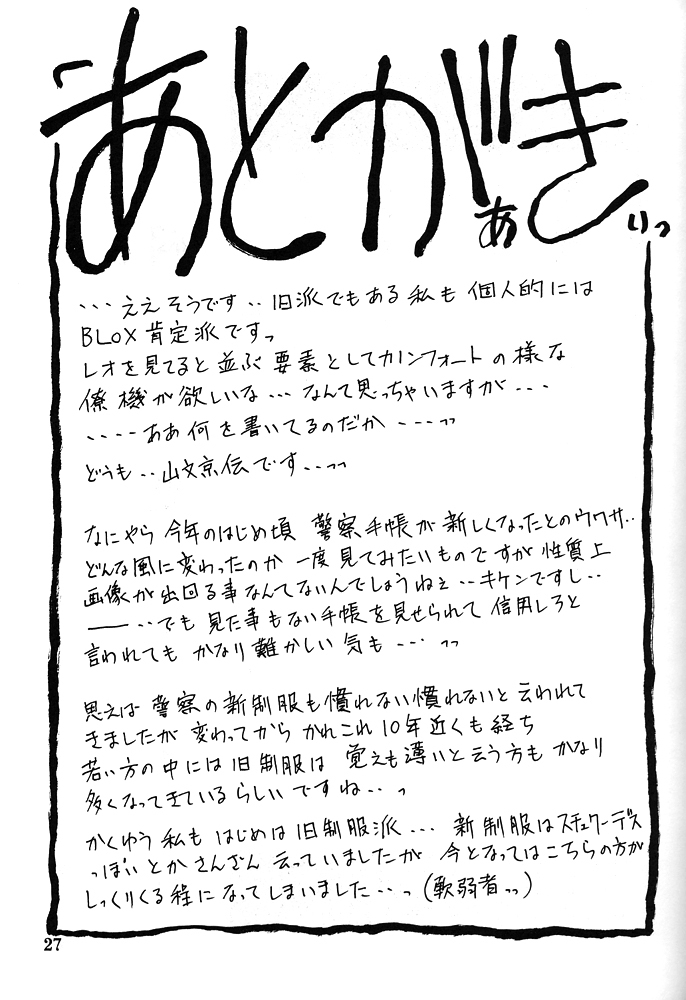 あとがき
ぁ
ぃっ
・・・ええそうです・・旧派でもある私も 個人的には
BLOX肯定派ですっ
レオを見てると並ぶ要素としてカノンフォートの様な
僚機が欲しいな・・・なんて思っちゃいますが・・・
・・・・ああ何を書いてるのだか・・・・っっ
どうも・・山文京伝です・・っっ
なにやら今年のはじめ頃 警察手帳が新しくなったとのウワサ・・
どんな風に変わったのか 一度見てみたいものですが 性質上
画像が出回る事なんてないんでしょうねぇ・・キケンですし・・
――・・でも 見た事もない手帳を見せられて 信用しろと
言われても かなり難かしい 気も・・・っっ
思えば 警察の新制服も慣れない慣れないと云われて
きましたが 変わってから かれこれ10年近くも経ち
若い方の中には旧制服は 覚えも薄いと云う方も かなり
多くなってきているらしいですね・・っ
かくゆう私も はじめは旧制服派・・・ 新制服はスチュワーデス
っぽいとかさんざん 云っていましたが 今となってはこちらの方が
しっくりくる程になってしまいました・・っ(軟弱者っっ)
27